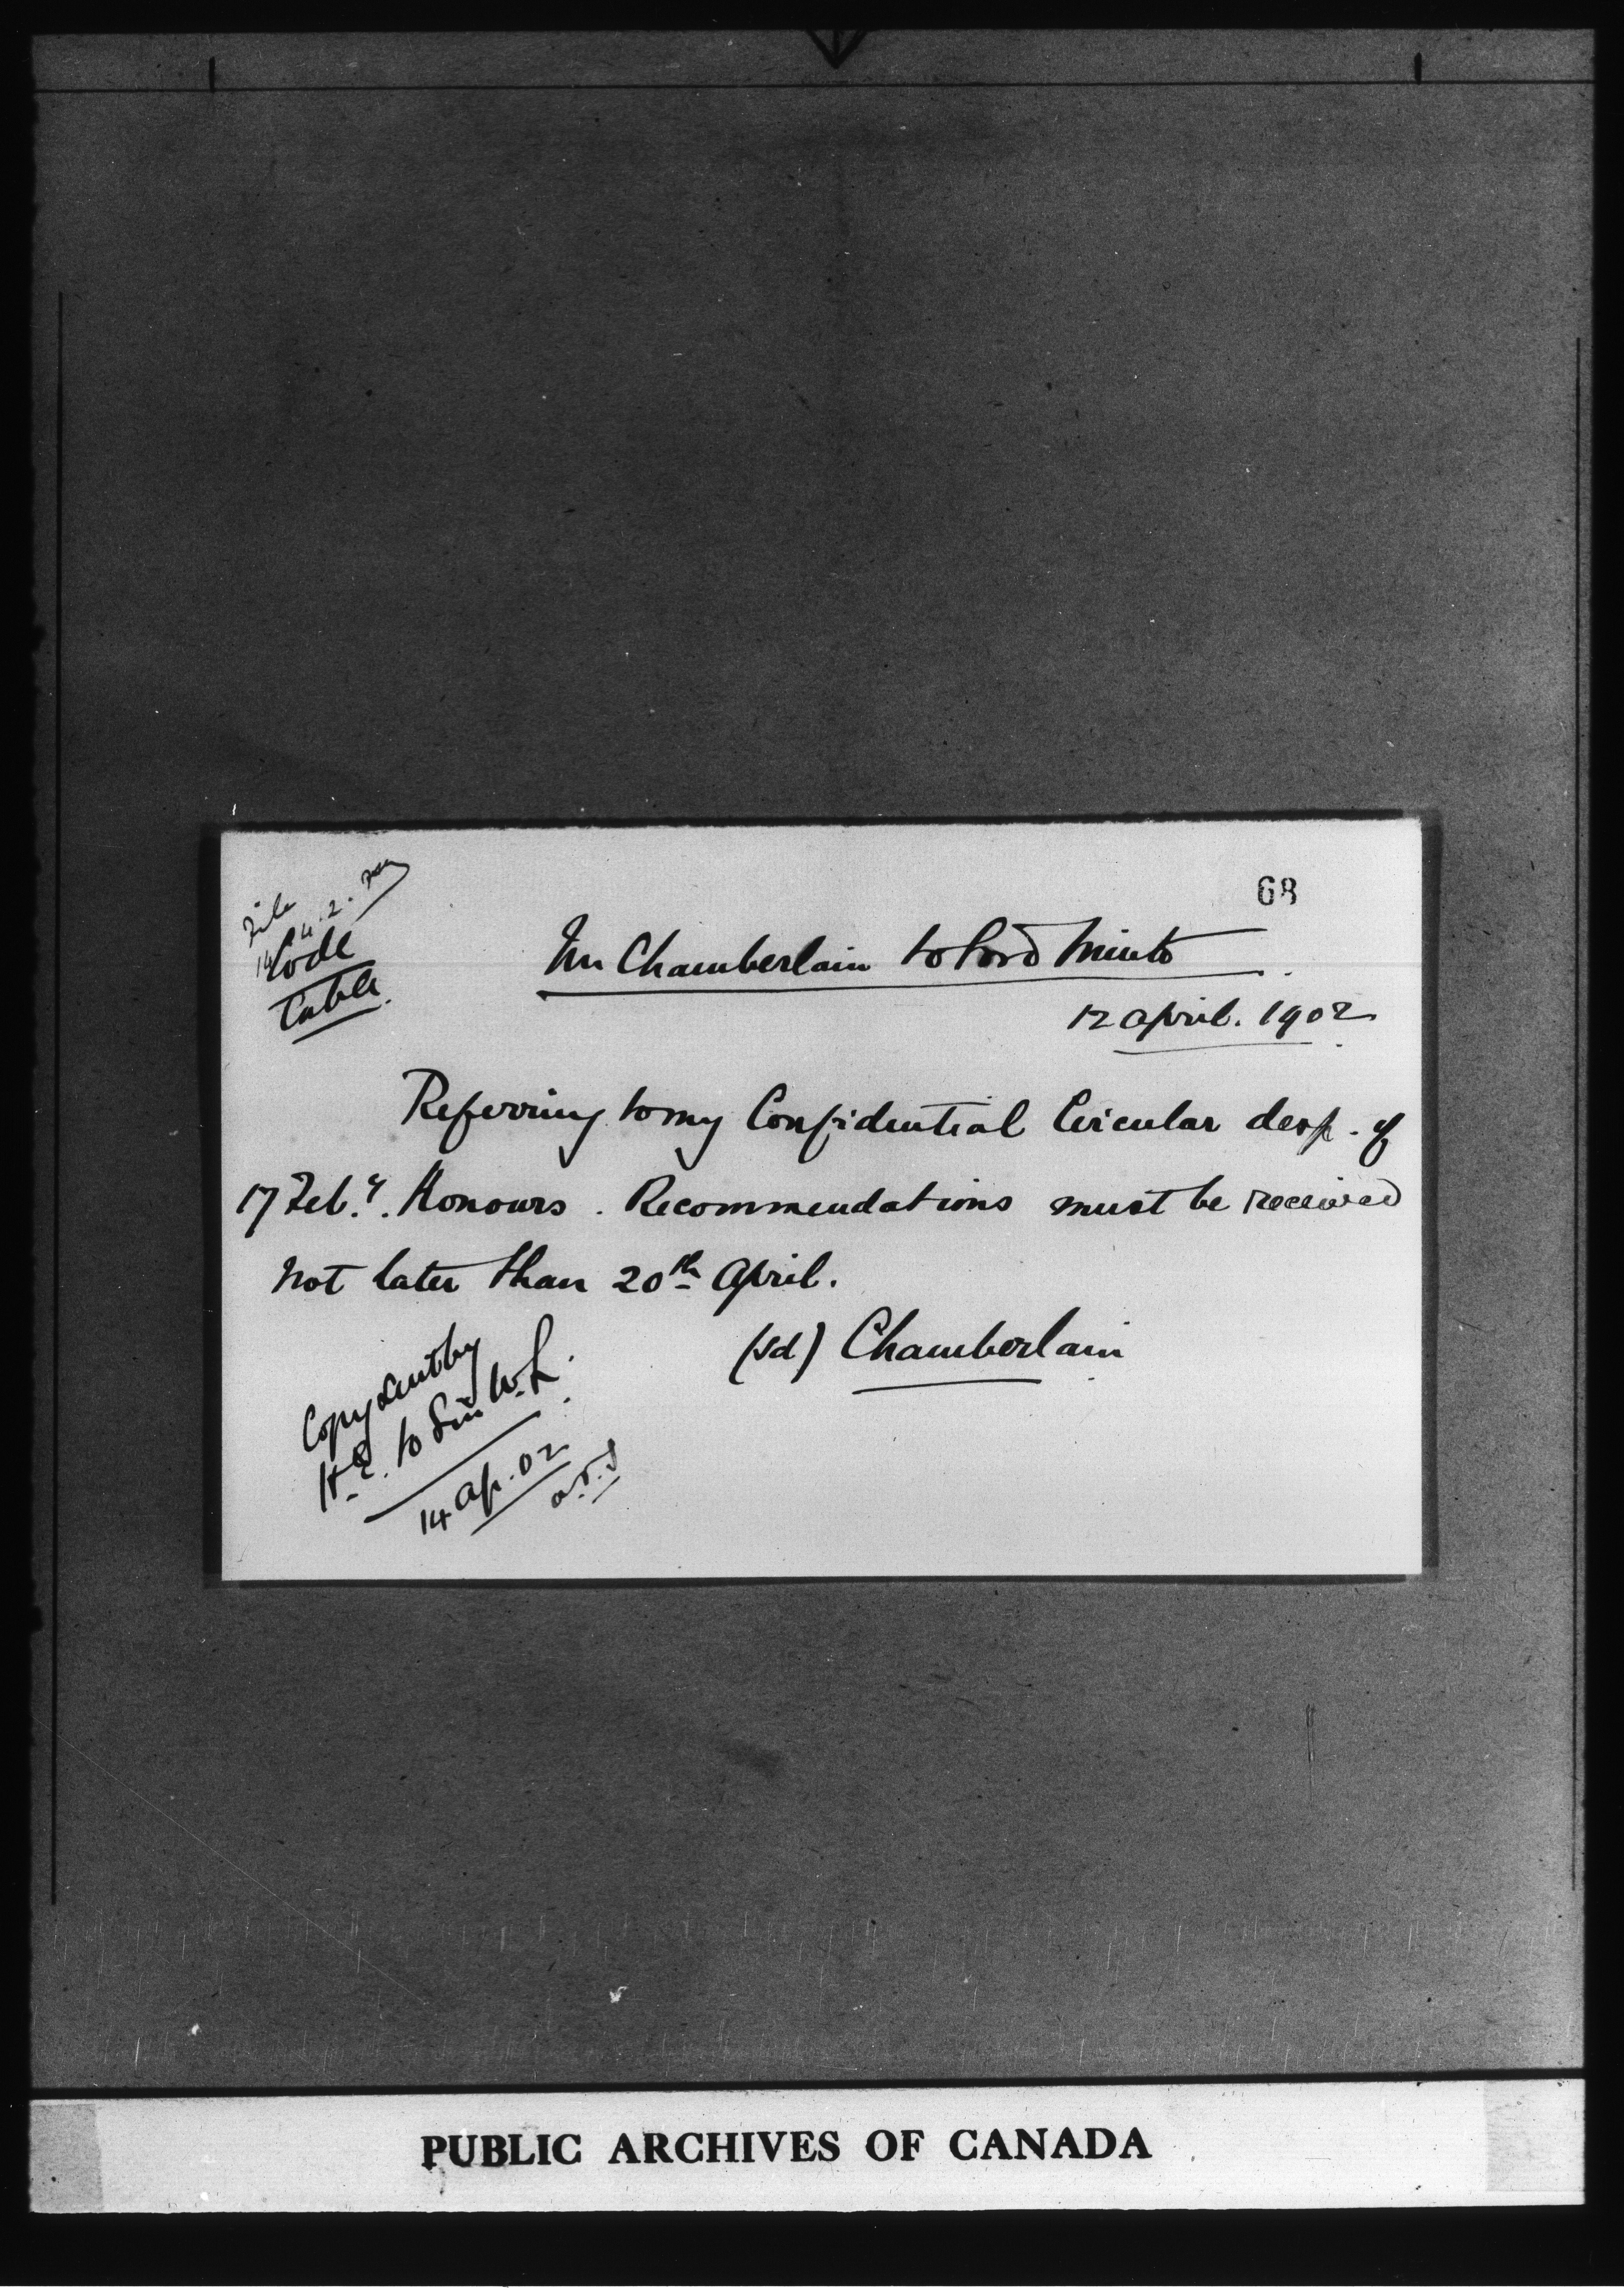 68
File
14.4.2.
Code
Cable.
Mr Chamberlain to Lord Minto.
12 April. 1902.
Referring to my Confidential Circular desp. of
17 Feb.y. Honours. Recommendations must be received
not later than 20th April.
(sd) Chamberlain
Copy sent by
H.E. to Sir W.L.
14 Ap. 02
PUBLIC ARCHIVES OF CANADA